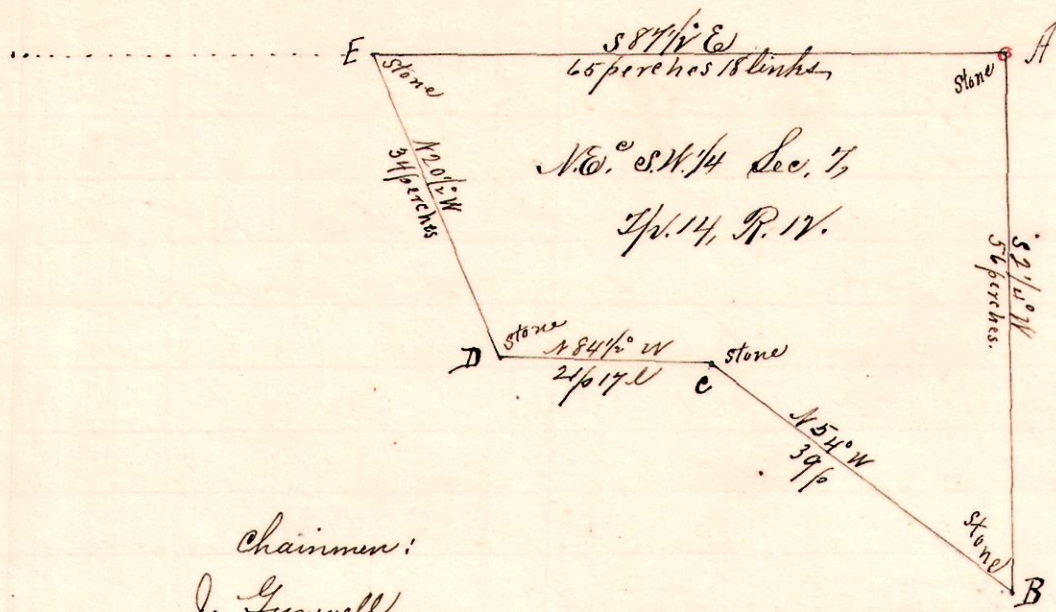 E
S 87 1/2 E
65 perches 18 links
A
stone
Stone
N 20 1/2° W
34 perches
N.E. c S.W. 1/4 Sec. 7,
Tp. 14, R. 12.
S 2 1/4° W
56 perches.
D
stone
N 84 1/2° W
21 p 17 l
C
stone
N 54° W
39 p
Stone
B
Chainmen:
J.